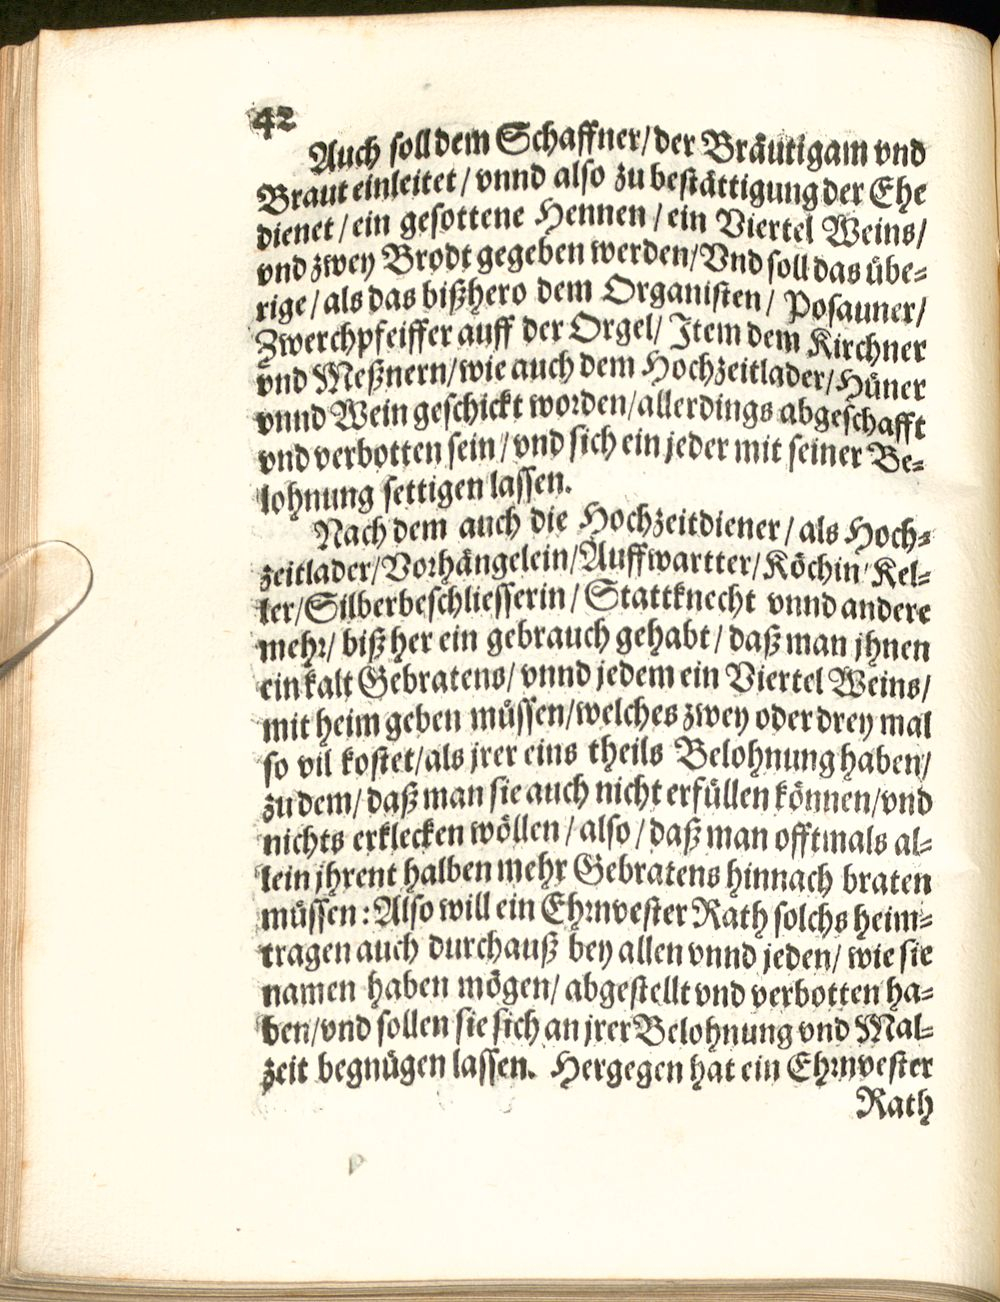 42
Auch soll dem Schaffner/ der Bräutigam vnd
Braut einleitet/ vnnd also zu bestättigung der Ehe
dienet/ ein gesottene Hennen/ ein Viertel Weins/
vnd zwey Brodt gegeben werden/ Vnd soll das übe-
rige/ als das bißhero dem Organisten/ Posauner/
Zwerchpfeiffer auff der Orgel/ Item dem Kirchner
vnd Meßnern/ wie auch dem Hochzeitlader/ Hüner
vnnd Wein geschickt worden/ allerdings abgeschafft
vnd verbotten sein/ vnd sich ein jeder mit seiner Be-
lohnung settigen lassen.
Nach dem auch die Hochzeitdiener/ als Hoch-
zeitlader/ Vorhängelein/ Auffwartter/ Köchin/ Kel-
ler/ Silberbeschliesserin/ Stattknecht vnnd andere
mehr/ biß her ein gebrauch gehabt/ daß man jhnen
ein kalt Gebratens/ vnnd jedem ein Viertel Weins/
mit heim geben müssen/ welches zwey oder drey mal
so vil kostet/ als jrer eins theils Belohnung haben/
zu dem/ daß man sie auch nicht erfüllen können/ vnd
nichts erklecken wöllen/ also/ daß man offtmals al-
lein jhrent halben mehr Gebratens hinnach braten
müssen: Also will ein Ehrnvester Rath solchs heim-
tragen auch durchauß bey allen vnnd jeden/ wie sie
namen haben mögen/ abgestellt vnd verbotten ha-
ben/ vnd sollen sie sich an jrer Belohnung vnd Mal-
zeit begnügen lassen. Hergegen hat ein Ehrnvester
Rath